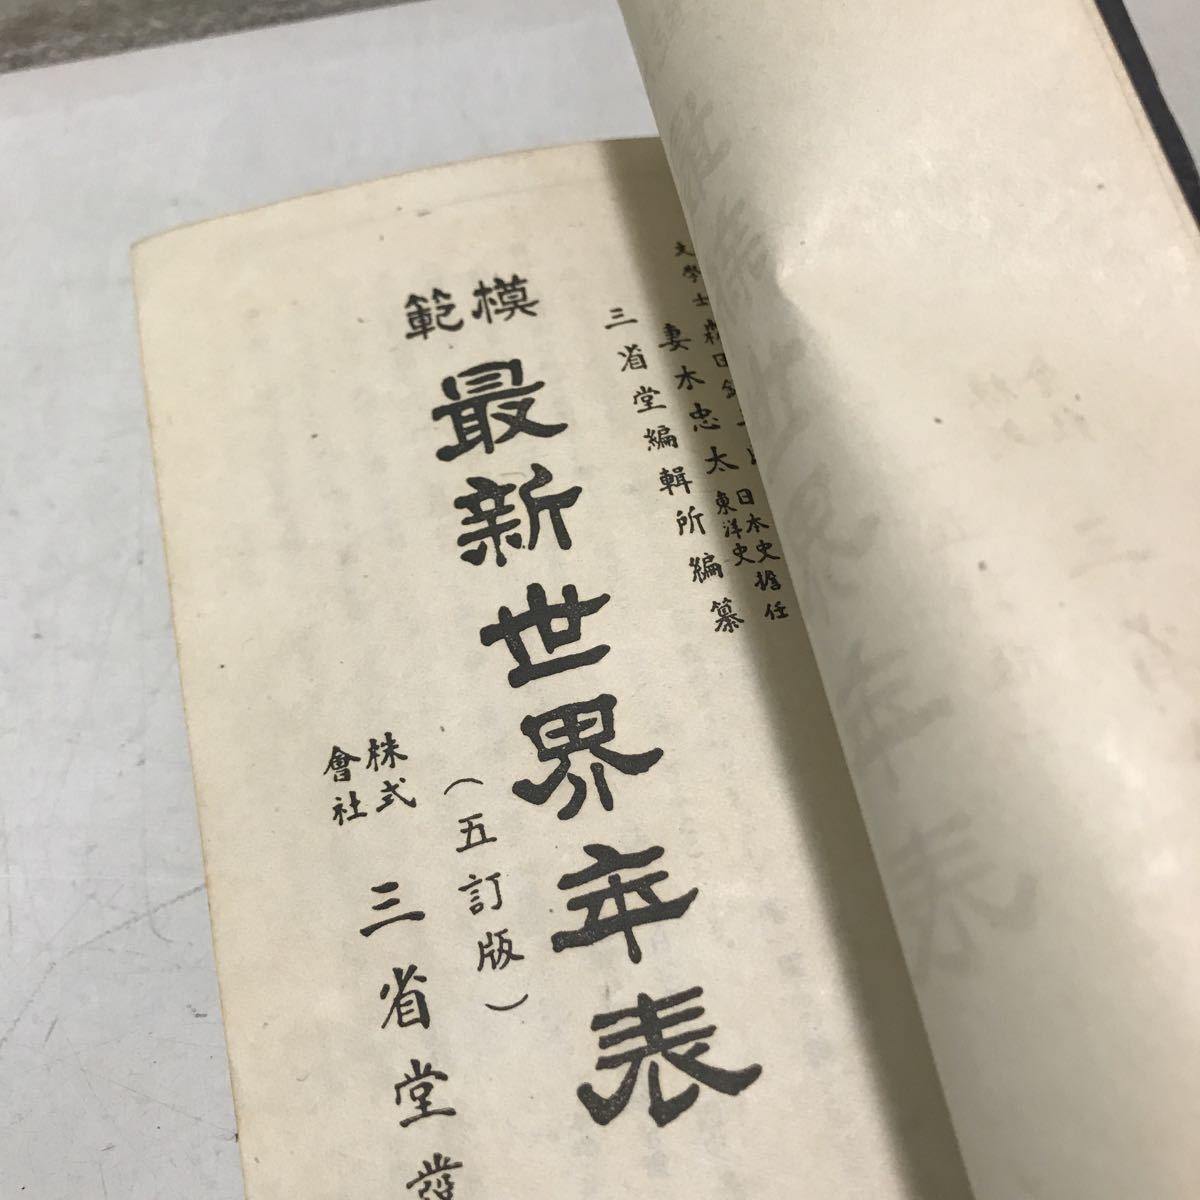 文學士 森田
妻木忠太
日本史
東洋史擔任
三省堂編輯所編纂
模範
最新世界年表
(五訂版)
株式
會社
三省堂發